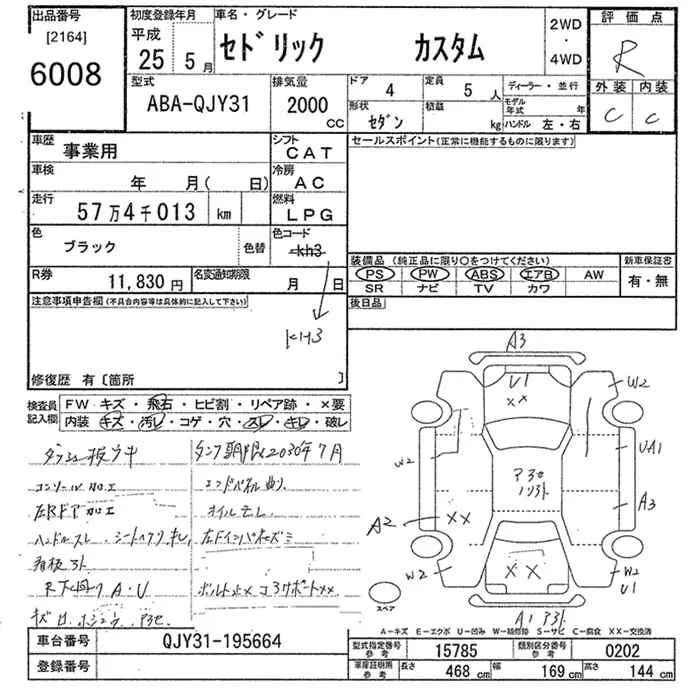 出品番号 初度登録年月 車名・グレード 評価点
[2164] 平成 2WD
6008 25年5月 セドリック カスタム ・ R
4WD
型式 排気量 ドア 4 定員 5人 ディーラー・並行 外装 内装
ABA-QJY31 2000cc 形状 セダン 積載 kg モデル年式 年 C C
ハンドル 左・右
車歴 事業用 シフト CAT セールスポイント(正常に機能するものに限ります)
車検 年 月( 日) 冷房 AC
走行 57万4千013 km 燃料 LPG
色 ブラック 色替 色コード kh3
装備品(純正品に限り〇をつけてください) 新車保証書
PS PW ABS エアB AW 有・無
SR ナビ TV カワ
R券 11,830円 名変通知期限 月 日
後日品
注意事項申告欄(不具合内容等は具体的に記入して下さい)
KH3
修復歴 有〔箇所 〕
検査員記入欄 FW キズ・飛石・ヒビ割・リペア跡・×要
内装 キズ・汚レ・コゲ・穴・スレ・キレ・破レ
ダッシュ板ウキ タンク期限2030年7月
コンソール加工 エンドパネル曲り
右RFドア加工 オイルモレ
ハンドルスレ シートヘタリ、キレ
看板外
R下回り A・U
A3
U1
XX
W2
UA1
A3
W2
A2 XX
W2
XX
W2
U1
A1
スペア
A-キズ E-エクボ U-凹み W-補修跡 S-サビ C-腐食 XX-交換済
車台番号 QJY31-195664 型式指定番号 参考 15785 類別区分番号 参考 0202
登録番号 車庫証明用 参考 長さ 468cm 幅 169cm 高さ 144cm